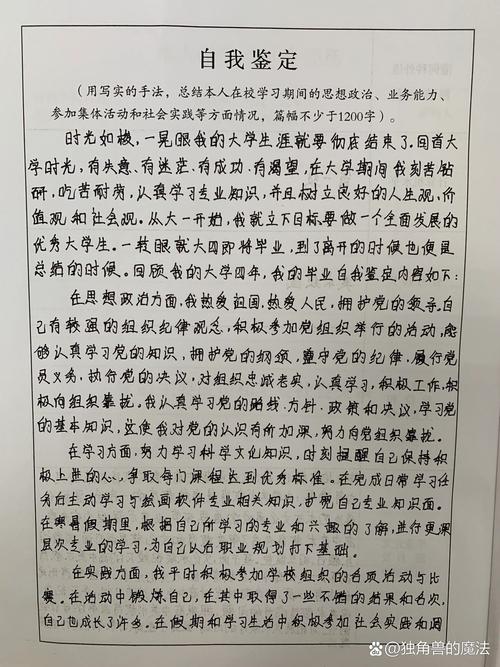 自我鉴定
（用写实的手法，总结本人在校学习期间的思想政治、业务能力、
参加集体活动和社会实践等方面情况，篇幅不少于1200字）。
时光如梭，一晃眼我的大学生涯就要彻底结束了。回首大
学时光，有失意、有迷茫、有成功、有渴望，在大学期间我刻苦钻
研，吃苦耐劳，认真学习专业知识，并且树立良好的人生观，价
值观和社会观。从大一开始，我就立下目标要做一个全面发展的
优秀大学生。一转眼就大四即将毕业，到了离开的时候也便是
总结的时候。回顾我的大学四年，我的毕业自我鉴定内容如下：
在思想政治方面，我热爱祖国，热爱人民，拥护党的领导。自
己有较强的组织纪律观念，积极参加党组织举行的活动，能
够认真学习党的知识，拥护党的纲领，遵守党的纪律，履行党
员义务，执行党的决议，对组织忠诚老实，认真学习，积极工作，积
极向组织靠拢。我认真学习党的路线、方针、政策和决议，学习党
的基本知识，这使我对党的认识有所加深，努力向党组织靠拢。
在学习方面，努力学习科学文化知识，时刻提醒自己保持积
极上进的心，争取每门课程达到优秀标准。在完成日常学习任
务后主动学习与绘画软件专业相关知识，扩宽自己专业知识面。
在寒暑假期里，根据自己所学习的专业和兴趣的了解，进行更深
层次专业的学习，为自己以后职业规划打下基础。
在实践方面，我平时积极参加学校组织的各项活动与比
赛。在活动中锻炼自己，在其中取得了一些不错的结果和名次，
自己也成长了许多。在假期和学习生活中积极参加社会实践和周
@独角兽的魔法